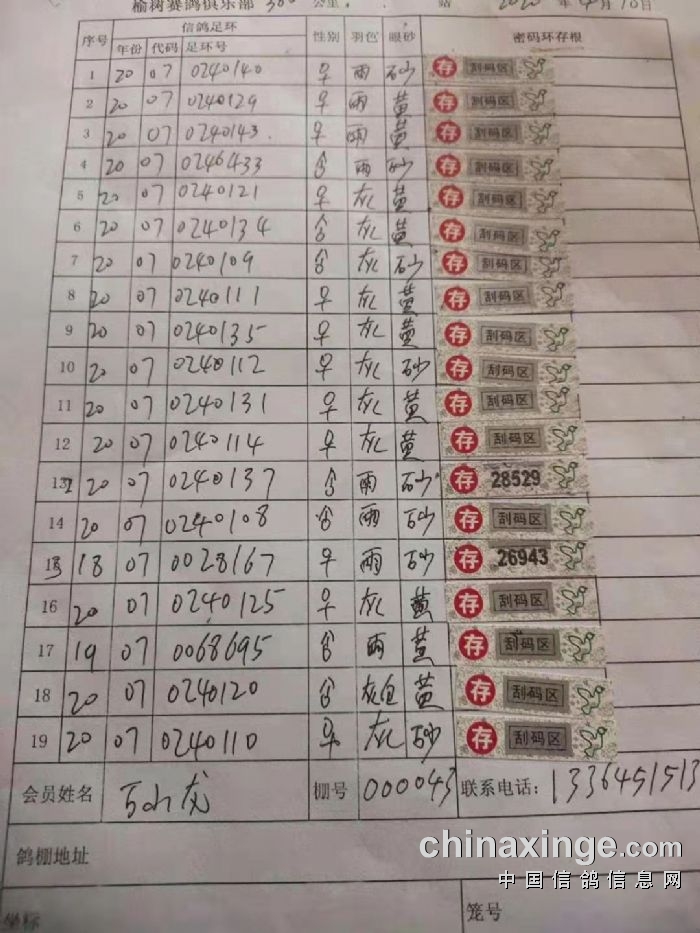 榆树赛鸽俱乐部 300 公里 站 2020 年 4月10日
序号 信鸽足环 性别 羽色 眼砂 密码环存根
年份 代码 足环号
1 20 07 0240140 早 雨 砂 存 刮码区
2 20 07 0240129 早 雨 黄 存 刮码区
3 20 07 0240143 早 雨 黄 存 刮码区
4 20 07 0246433 合 雨 砂 存 刮码区
5 20 07 0240121 早 灰 黄 存 刮码区
6 20 07 0240134 合 灰 黄 存 刮码区
7 20 07 0240109 合 灰 砂 存 刮码区
8 20 07 0240111 早 灰 黄 存 刮码区
9 20 07 0240135 早 灰 黄 存 刮码区
10 20 07 0240112 早 灰 砂 存 刮码区
11 20 07 0240131 早 灰 黄 存 刮码区
12 20 07 0240114 早 灰 黄 存 刮码区
13 20 07 0240137 合 雨 砂 存 28529
14 20 07 0240108 合 雨 砂 存 刮码区
15 18 07 0028167 早 雨 砂 存 26943
16 20 07 0240125 早 灰 黄 存 刮码区
17 19 07 0068695 合 雨 黄 存 刮码区
18 20 07 0240120 合 灰白 黄 存 刮码区
19 20 07 0240110 早 灰 砂 存 刮码区
会员姓名 棚号 000043 联系电话: 1336451513
鸽棚地址
chinaxinge.com
中国信鸽信息网
坐标 笼号